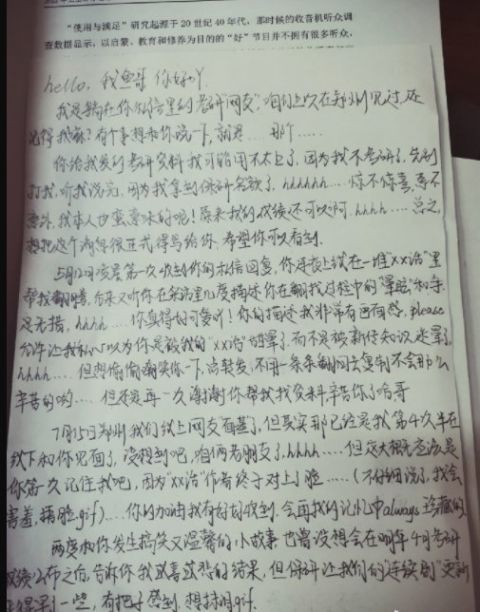 “使用与满足”研究起源于20世纪40年代，那时候的收音机听众调
查数据显示，以启蒙、教育和修养为目的的“好”节目并不拥有很多听众，
hello，我鱼哥你好吖
我是躺在你的私信里的考研“网友”，咱们上次在郑州见过，还
记得我嘛？有个事想和你说一下，就是……那个……
你给我发的考研资料我可能用不太上了，因为我不考研了，先别
打我，听我说完，因为我拿到保研名额了，hhhhhh……惊不惊喜，意不
意外，我本人也蛮意外的呢！原来我的成绩还可以啊，hhhh……总之，
想把这个消息很正式得写给你，希望你可以看到。
5月12日凌晨第一次收到你的私信回复，你连夜上线在一堆“xx治”里
帮我翻，后来又听你在直播里几度描述你在翻找过程中的“晕眩”和手
足无措，hhhh……你真得好可爱吖！你的描述我非常有画面感，please
允许让我私心以为你是被我的“xx治”绕晕了，而不是被新传知识迷晕了，
hhhh……但想偷偷嘲笑你一下，点转发，不用一条条翻回去复制不会那么
辛苦的哟……但还是再一次谢谢你帮我找资料，辛苦你了哈哥
7月15日郑州我们线上网友面基了，但其实那已经是我第4次坐在
线下和你见面了，没想到吧，咱俩老朋友了，hhhh……但这大概应该是
你第一次记住我吧，因为“xx治”作者终于对上了脸……（不仔细说了，我会
害羞，捂脸.gif）……你的加油我有好好收到，会再我的记忆中always珍藏的
两度和你发生搞笑又温馨的小故事，也曾设想会在明年4月考研
成绩公布之后，告诉你我或喜或悲的结果，但保研让我们的“连续剧”更新
得早了一些，有把子感到